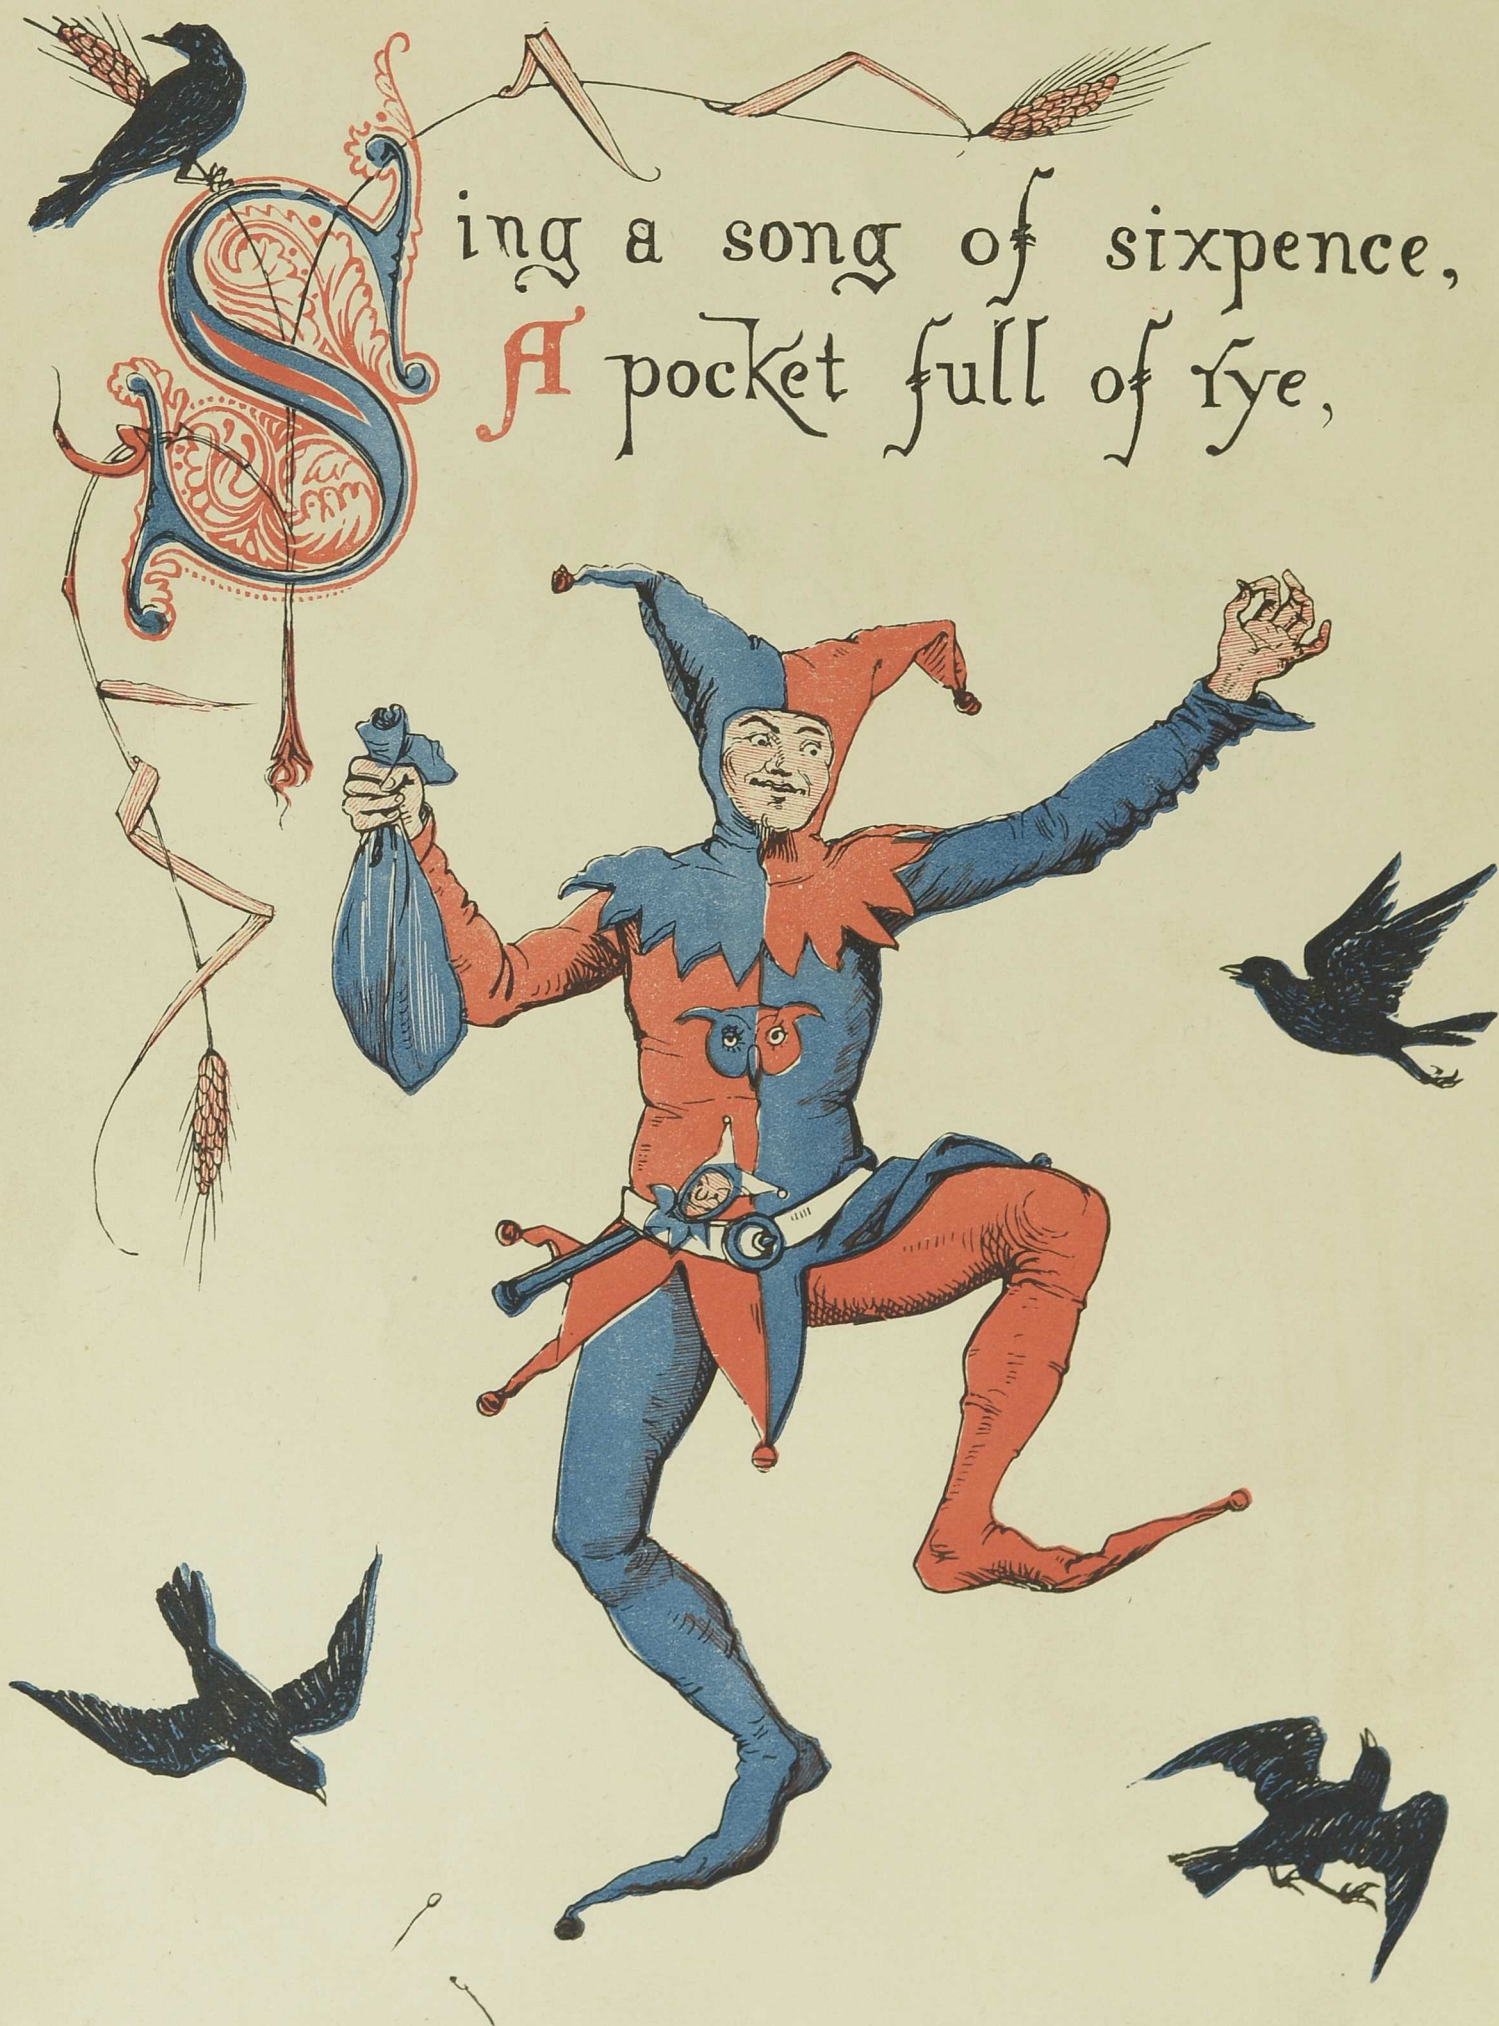 Sing a song of sixpence,
A pocket full of rye,